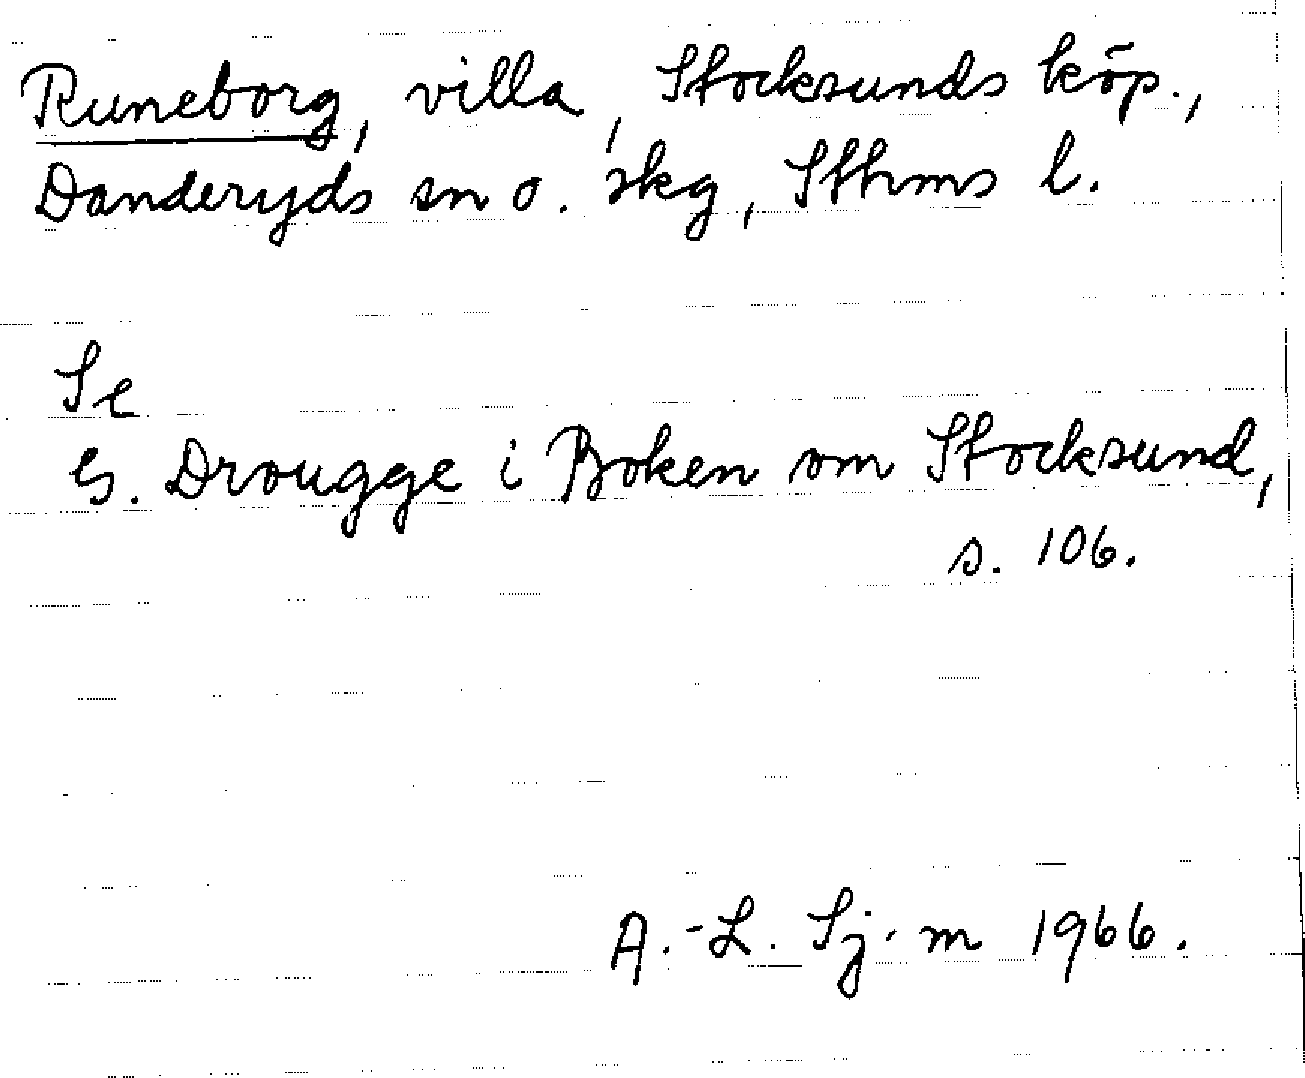 Runeborg, villa, Stocksunds köp.,
Danderyds sn o. skg, Sthms l.
Se
G. Drougge i Boken om Stocksund,
s. 106.
A.-L. Sj-m 1966.